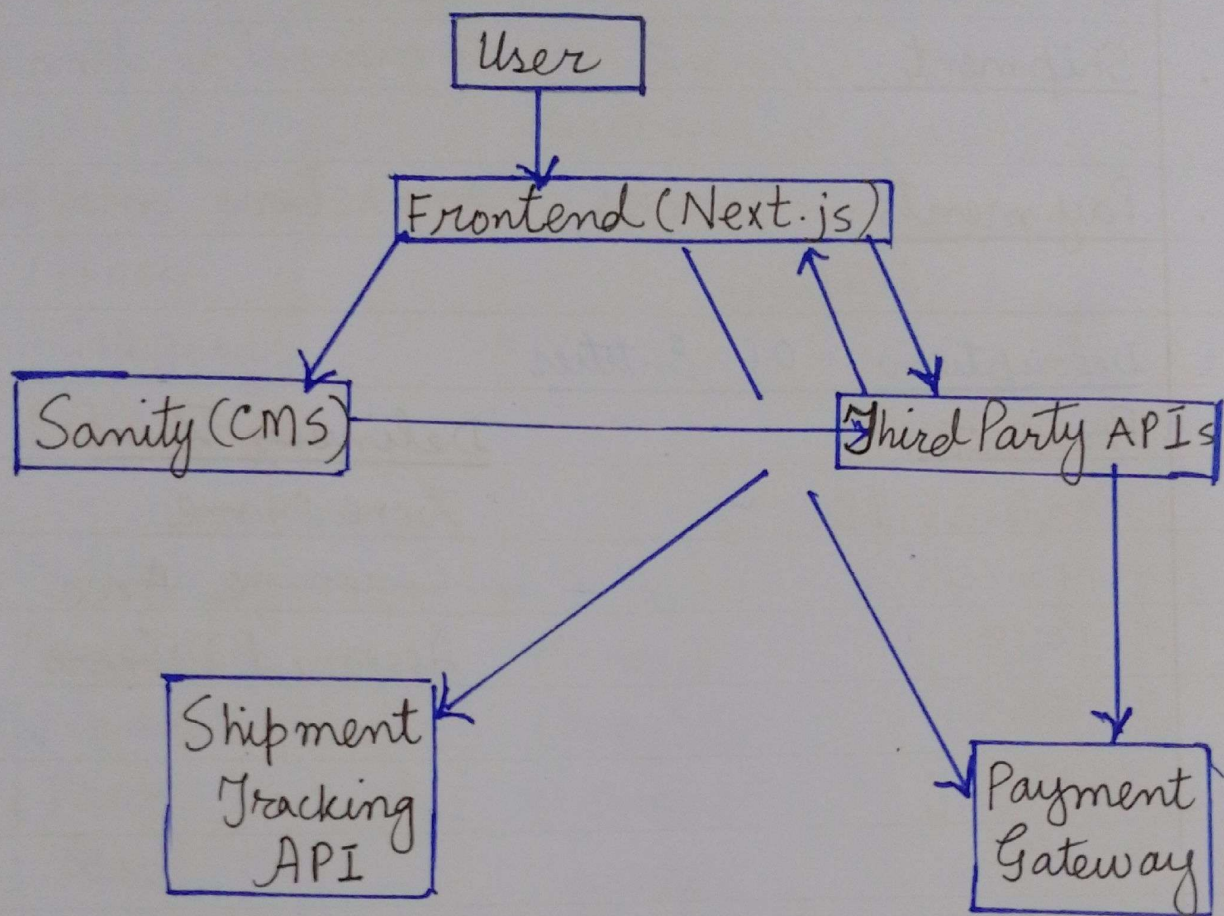 User
Frontend (Next.js)
Sanity (CMS)
Third Party APIs
Shipment
Tracking
API
Payment
Gateway